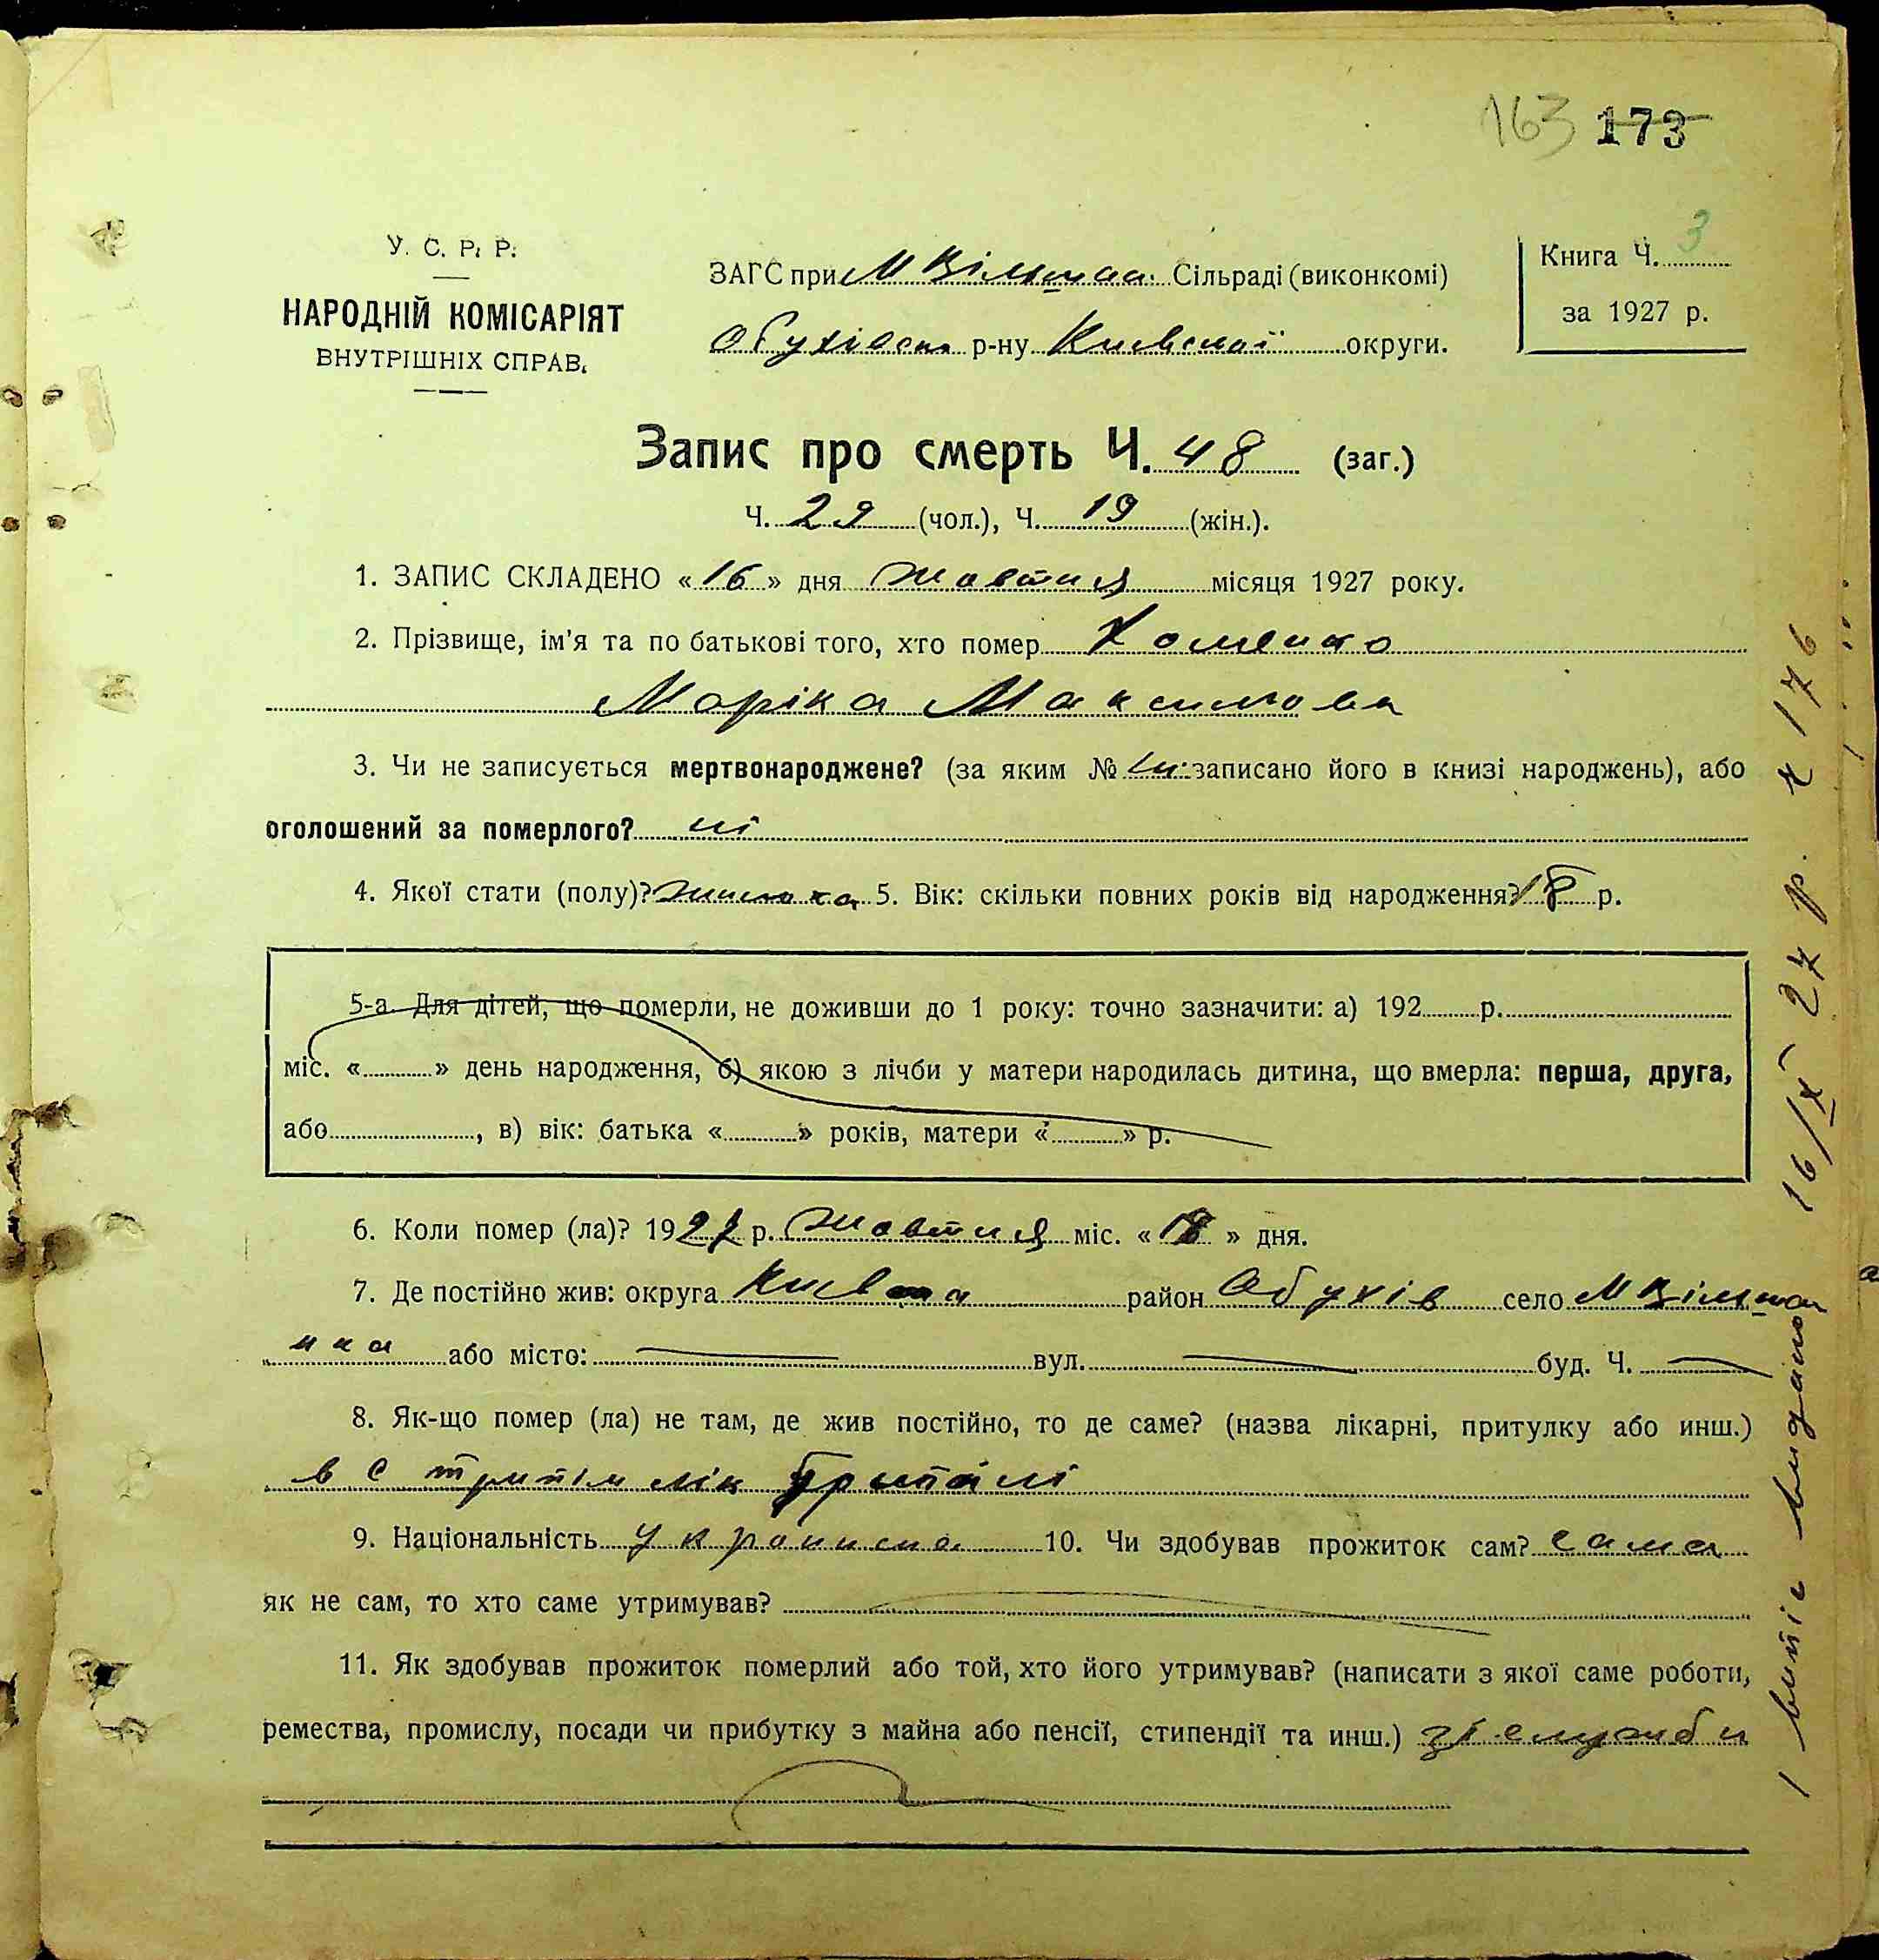 163 173
У. С. Р. Р.
НАРОДНІЙ КОМІСАРІЯТ
ВНУТРІШНІХ СПРАВ.
ЗАГС при М Вільшан. Сільраді (виконкомі)
Обухівськ р-ну Київської округи.
Книга Ч. 3
за 1927 р.
Запис про смерть Ч. 48 (заг.)
Ч. 29 (чол.), Ч. 19 (жін.).
1. ЗАПИС СКЛАДЕНО «16» дня жовтня місяця 1927 року.
2. Прізвище, ім'я та по батькові того, хто помер Хоменко
Маріка Максимова
3. Чи не записується мертвонароджене? (за яким № записано його в книзі народжень), або
оголошений за померлого? ні
4. Якої стати (полу)? жіноха 5. Вік: скільки повних років від народження? 18 р.
5-а. Для дітей, що померли, не доживши до 1 року: точно зазначити: а) 192 р.
міс. « » день народження, б) якою з лічби у матери народилась дитина, що вмерла: перша, друга,
або , в) вік: батька « » років, матери « » р.
6. Коли помер (ла)? 1927 р. Жовтня міс. « » дня.
7. Де постійно жив: округа район Обухів село М Вільшан
нка або місто: — вул. — буд. Ч. —
8. Як-що помер (ла) не там, де жив постійно, то де саме? (назва лікарні, притулку або инш.)
в с лік Трипілі
9. Національність україньска 10. Чи здобував прожиток сам? сама
як не сам, то хто саме утримував?
11. Як здобував прожиток померлий або той, хто його утримував? (написати з якої саме роботи,
ремества, промислу, посади чи прибутку з майна або пенсії, стипендії та инш.) зі служби
1 випіс видано 16/X 27 р. 176